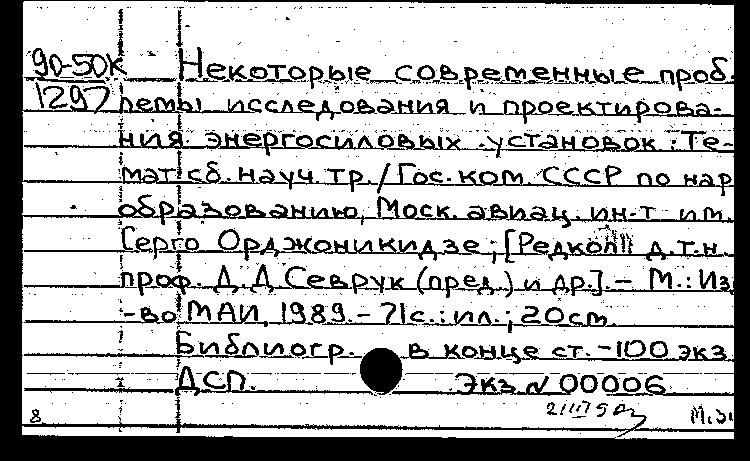 90-50К Некоторые современные проб-
1297 лемы исследования и проектирова-
ния энергосиловых установок: Те-
мат. сб. науч. тр. / Гос. ком. СССР по нар.
образованию, Моск. авиац. ин-т им.
Серго Орджоникидзе; [Редкол.: д.т.н.
проф. Д.Д Севрук (пред.) и др.]. – М.: Из
-во МАИ, 1989. – 71с.: ил.; 20см.
Библиогр. в конце ст. – 100 экз
ДСП. Экз. N 00006
8